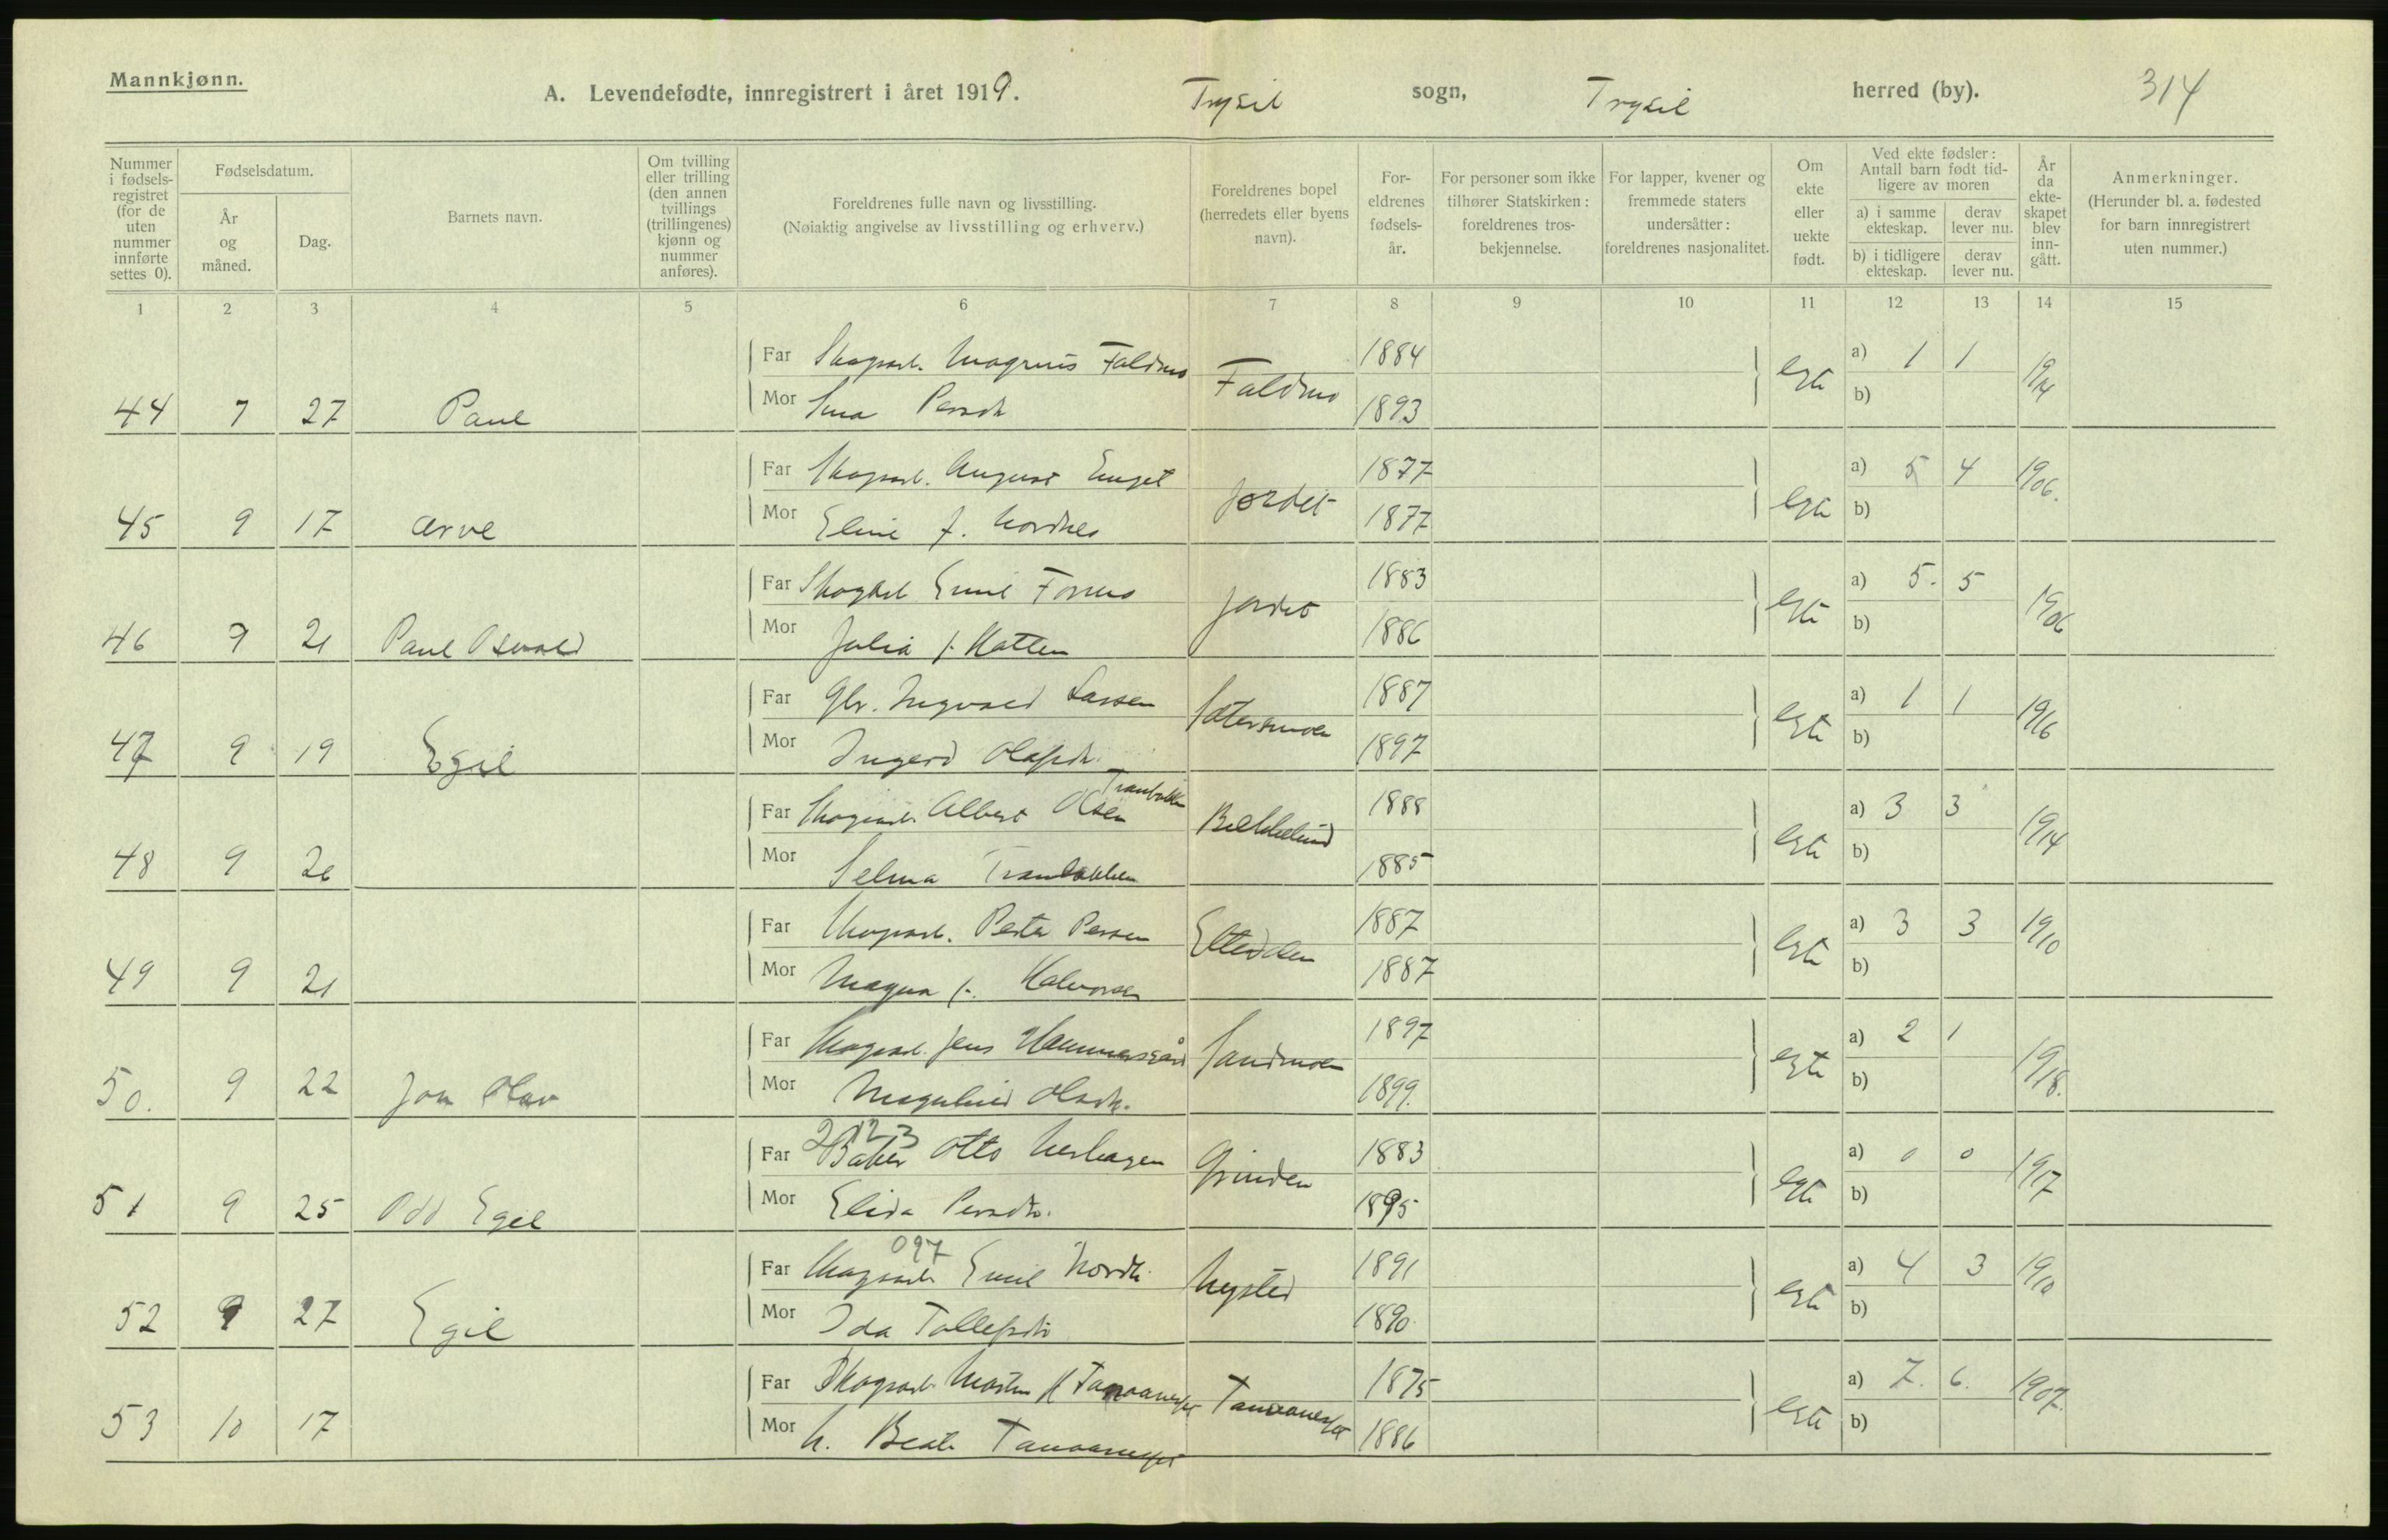 Mannkjønn.
A. Levendefødte, innregistrert i året 1919. Trysil sogn, Trysil herred (by). 314
Nummer i fødselsregistret (for de uten nummer innførte settes 0).
Fødselsdatum.
År og måned.
Dag.
Barnets navn.
Om tvilling eller trilling (den annen tvillings (trillingenes) kjønn og nummer anføres).
Foreldrenes fulle navn og livsstilling.
(Nøiaktig angivelse av livsstilling og erhverv.)
Foreldrenes bopel (herredets eller byens navn).
Foreldrenes fødselsår.
For personer som ikke tilhører Statskirken: foreldrenes trosbekjennelse.
For lapper, kvener og fremmede staters undersåtter: foreldrenes nasjonalitet.
Om ekte eller uekte født.
Ved ekte fødsler: Antall barn født tidligere av moren
a) i samme ekteskap.
derav lever nu.
b) i tidligere ekteskap.
derav lever nu.
År da ekteskapet blev inngått.
Anmerkninger.
(Herunder bl. a. fødested for barn innregistrert uten nummer.)
1 2 3 4 5 6 7 8 9 10 11 12 13 14 15
Far Skogsarb. Magnus Faldmo 1884 a) 1 1
44 7 27 Paul Mor Persdt. Faldmo 1893 egte b) 1914
Far Skogsarb. August Enget 1877 a) 5 4
45 9 17 Arve Mor Eline f. Nordnes Jordet 1877 egte b) 1906.
Far Skogarb Emil Formo 1883 a) 5. 5
46 9 21 Paul Osvald Mor Julia f. Hatten Jordet 1886 egte b) 1906
Far Gbr. Ingvald Larsen 1887 a) 1 1
47 9 19 Egil Mor Ingerd Olafsdt. Sætersmoen 1897 egte b) 1916
Far Skogsarb Albert Olsen Tranbakken 1888 a) 3 3
48 9 26 Mor Selma Tranbakken Bækkelund 1885 egte b) 1914
Far Skogsarb. Peder Persen 1887 a) 3 3
49 9 21 Mor Magna f. Halvorsen Eltedalen 1887 egte b) 1910
Far Skogsarb. Jens Hammersgård 1897 a) 2 1
50. 9 22 Jon Olav Mor Magnhild Olsdt. Sandmoen 1899. egte b) 1918.
2123
Far Baker Otto Nerhagen 1883 a) 0 0
51 9 25 Odd Egil Mor Elida Persdt. Grinden 1895 egte b) 1917
097
Far Skogsarb Emil Nordli 1891 a) 4 3
52 9 27 Egil Mor Ida Tollefsdt Nysted 1890 egte b) 1910
Far Skogsarb. Morten H Tanaaneset 1875 a) 7. 6.
53 10 17 Mor H. Beate Tanaaneset Tanaaneset 1886 egte b) 1907.